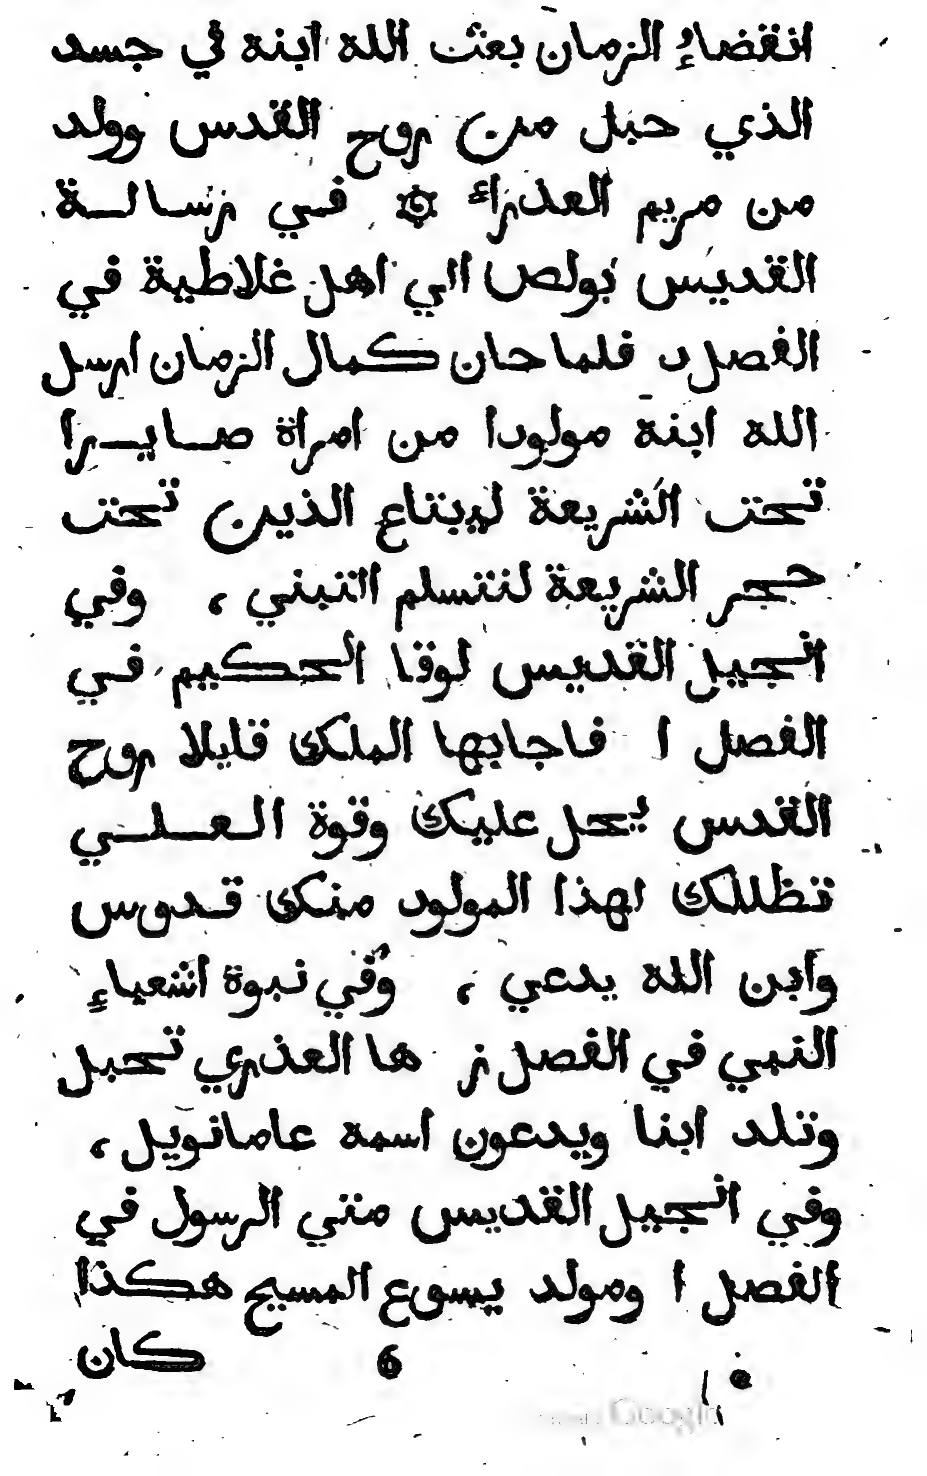 انقضاءِ الزمان بعث الله ابنه في جسد
الذي حبل من روح القدس وولد
من مريم العذراء ۞ في رسالة
القديس بولص الي اهل غلاطية في
الفصل د فلما حان كمال الزمان ارسل
الله ابنه مولودا من امراة صايرا
تحت الشريعة ليبتاع الذين تحت
حجر الشريعة لنتسلم التبني ، وفي
انجيل القديس لوقا الحكيم في
الفصل ا فاجابها الملك قليلا روح
القدس يحل عليك وقوة العلي
تظللك لهذا المولود منك قدوس
وابن الله يدعي ، وفي نبوة اشعياءِ
النبي في الفصل ز ها العذري تحبل
وتلد ابنا ويدعون اسمه عامانويل ،
وفي انجيل القديس متي الرسول في
الفصل ا ومولد يسوع المسيح هكذا
6 كان
Google